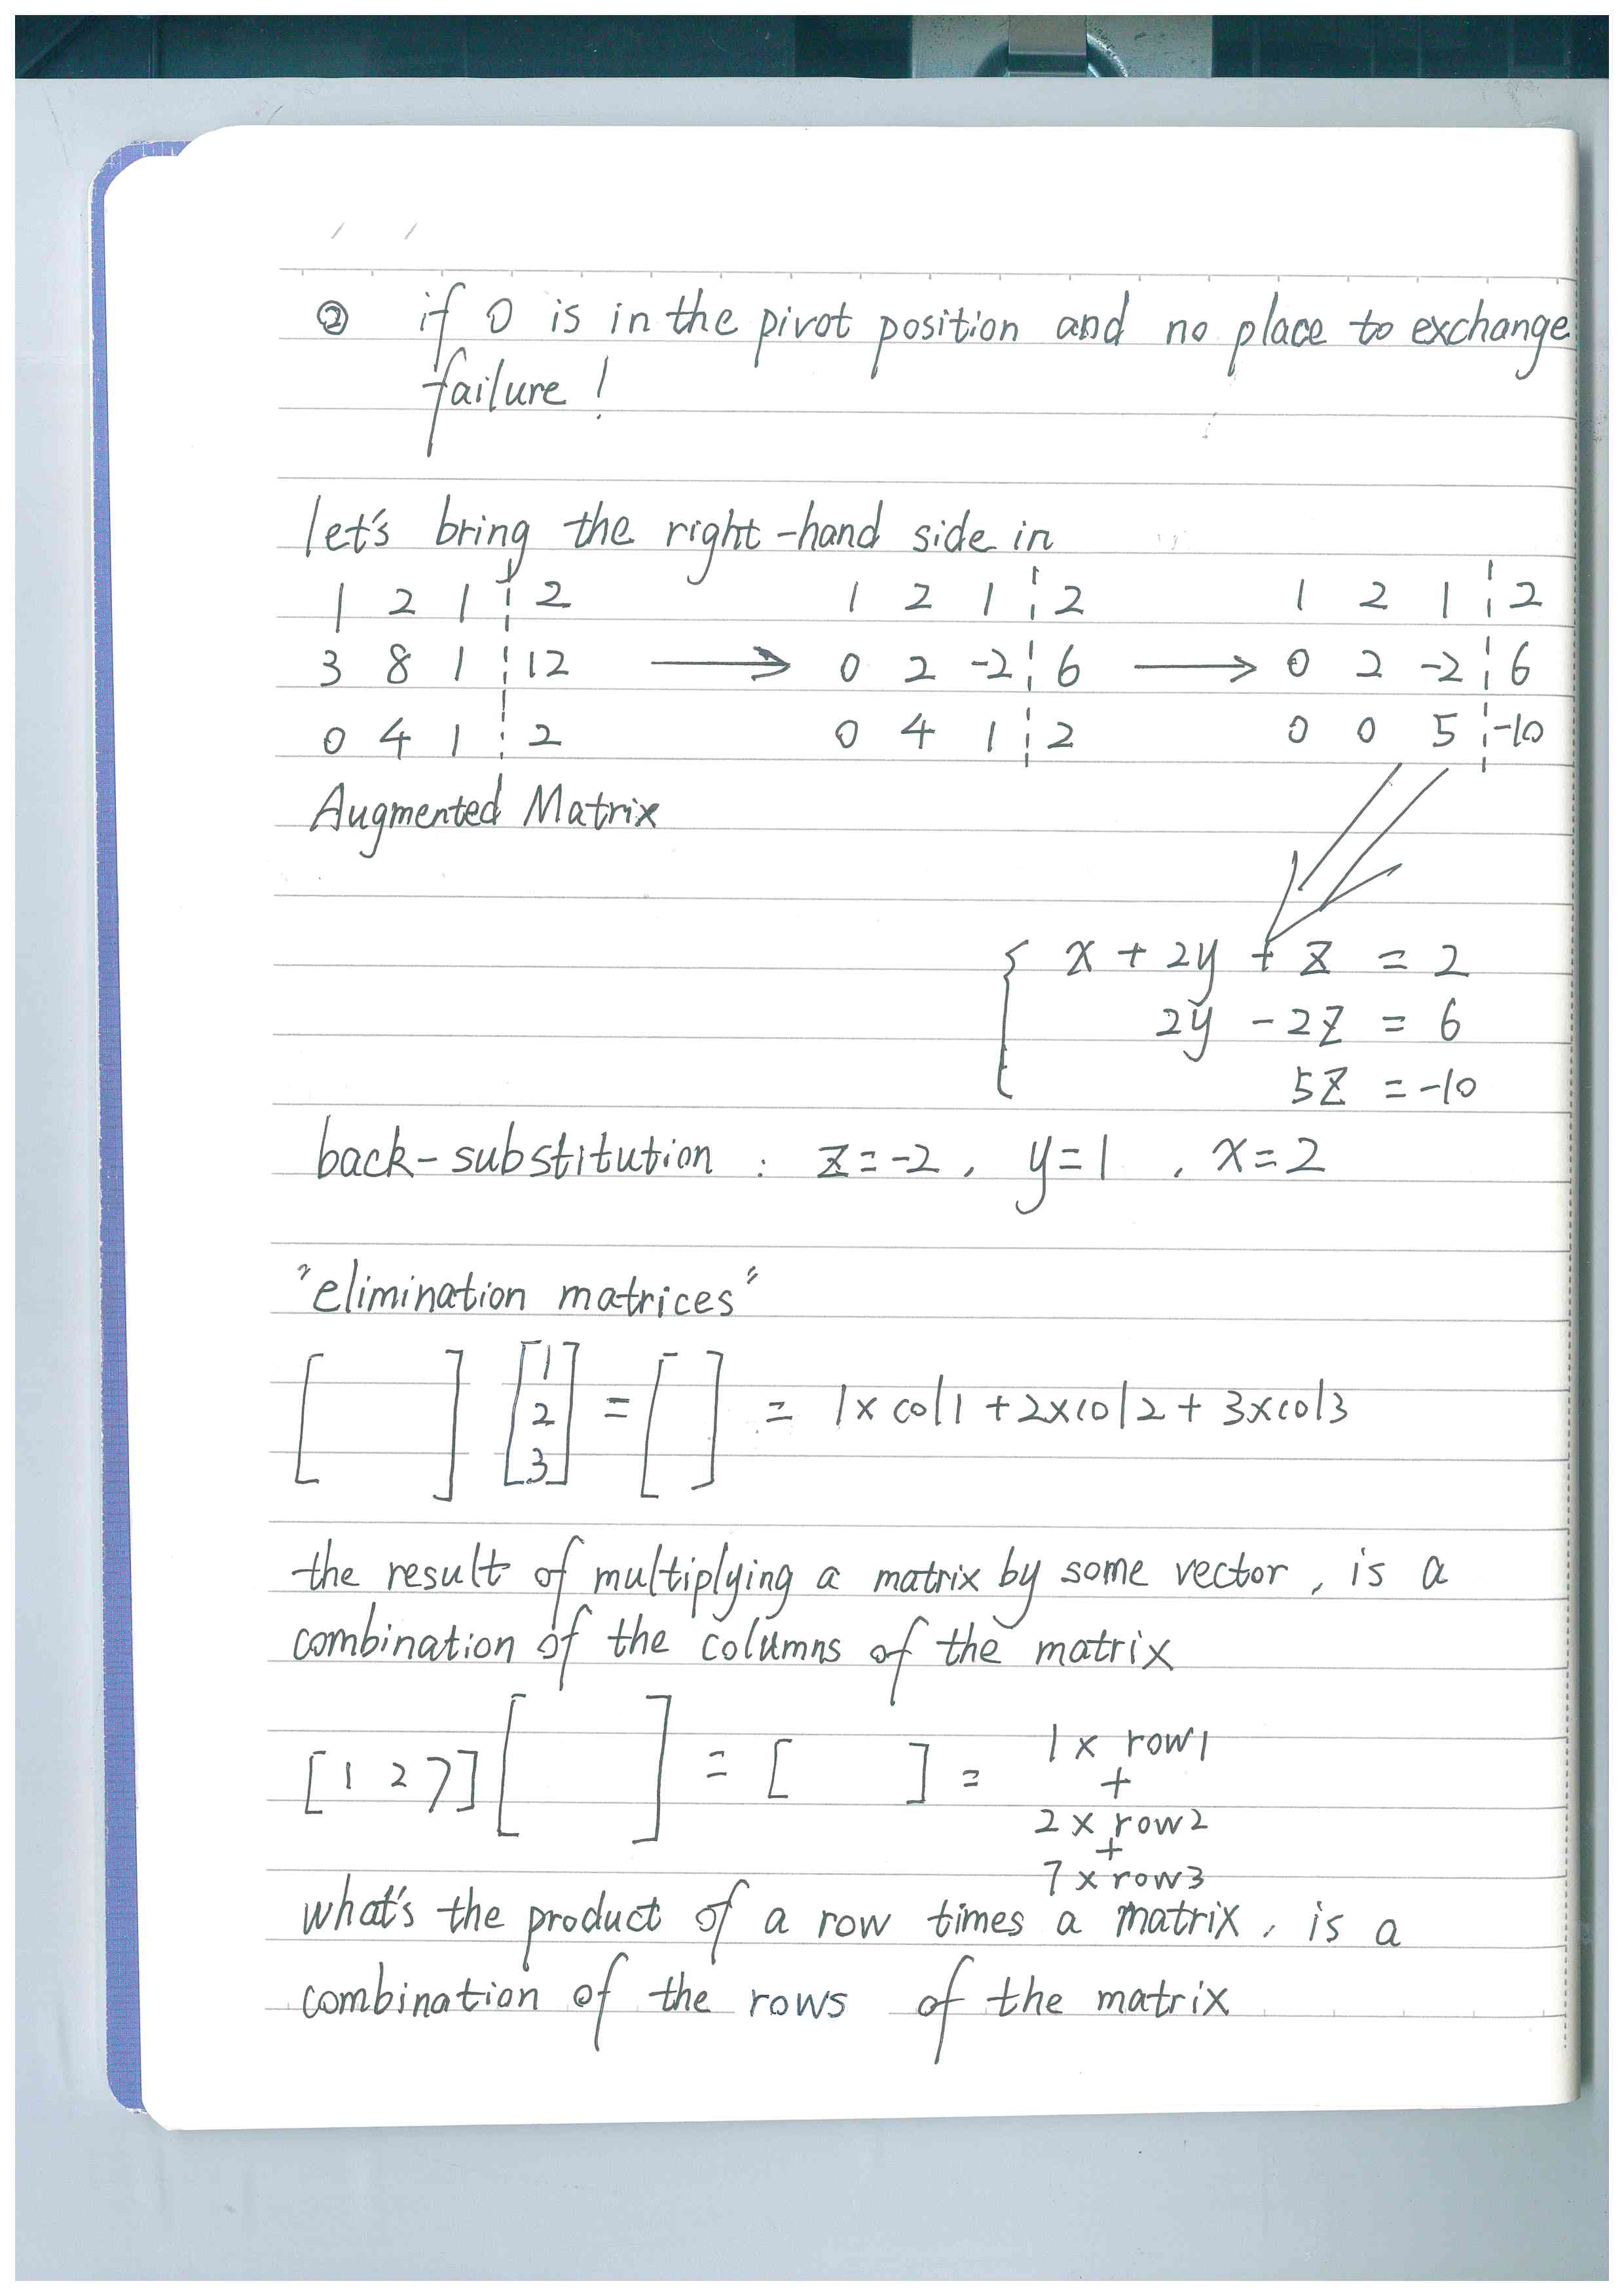 ② if 0 is in the pivot position and no place to exchange
failure!
let's bring the right-hand side in
1 2 1 ¦ 2 1 2 1 ¦ 2 1 2 1 ¦ 2
3 8 1 ¦ 12 → 0 2 -2 ¦ 6 → 0 2 -2 ¦ 6
0 4 1 ¦ 2 0 4 1 ¦ 2 0 0 5 ¦ -10
Augmented Matrix
{ x + 2y + z = 2
2y - 2z = 6
5z = -10
back-substitution : z=-2, y=1, x=2
"elimination matrices"
[ ] [1 2 3] = [ ] = 1×col1 + 2×col2 + 3×col3
the result of multiplying a matrix by some vector, is a
combination of the columns of the matrix
[1 2 7] [ ] = [ ] = 1 × row1
+
2 × row2
+
7 × row3
what's the product of a row times a matrix, is a
combination of the rows of the matrix